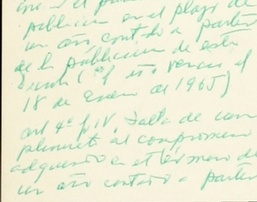 publicación en el plazo de
un año contado a partir
de la publicación de este
(el año vence el
18 de enero de 1965)
art 4º f IV. Falta de cum
plimiento al compromiso
adquirido en el término de
un año contado a partir